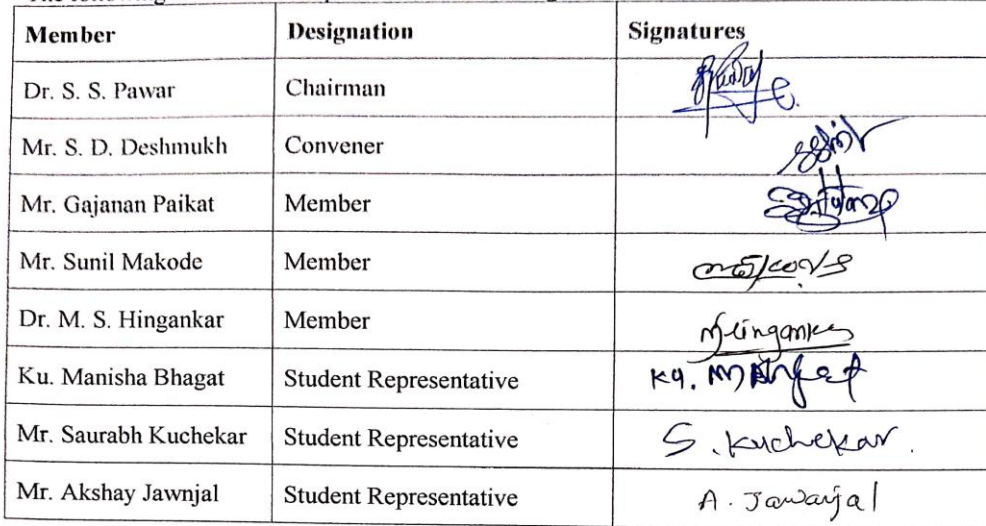 Member Designation Signatures
Dr. S. S. Pawar Chairman
Mr. S. D. Deshmukh Convener
Mr. Gajanan Paikat Member
Mr. Sunil Makode Member
Dr. M. S. Hingankar Member
Ku. Manisha Bhagat Student Representative Ku.
Mr. Saurabh Kuchekar Student Representative S. Kuchekar.
Mr. Akshay Jawnjal Student Representative A. Jawanjal